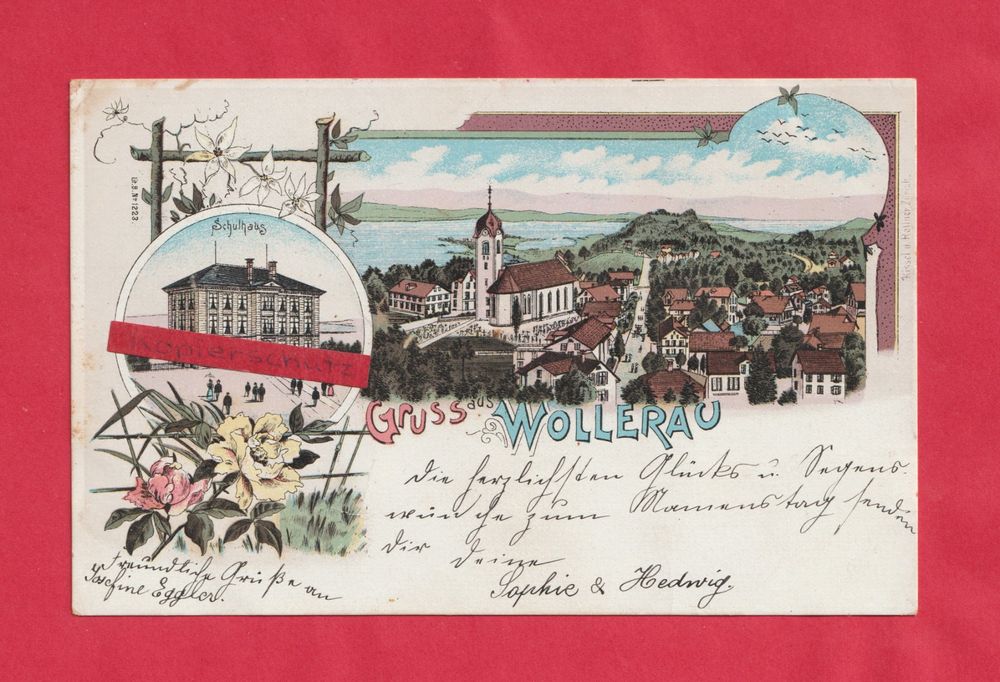 Lit. B. No 1223.
Schulhaus
Kopierschutz
Gruss aus Wollerau
Die herzlichsten Glücks u. Segens-
wünche zum Namenstag senden
Dir deine
Sophie & Hedwig.
Freundliche Grüße an
Josefine Eggler.